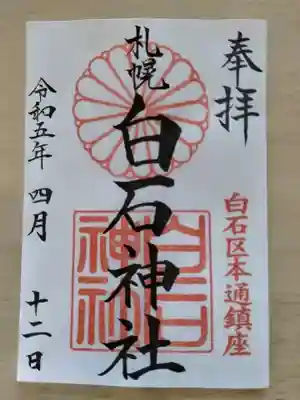 奉拝
白石区本通鎮座
札幌
白石神社
令和五年 四月 十二日